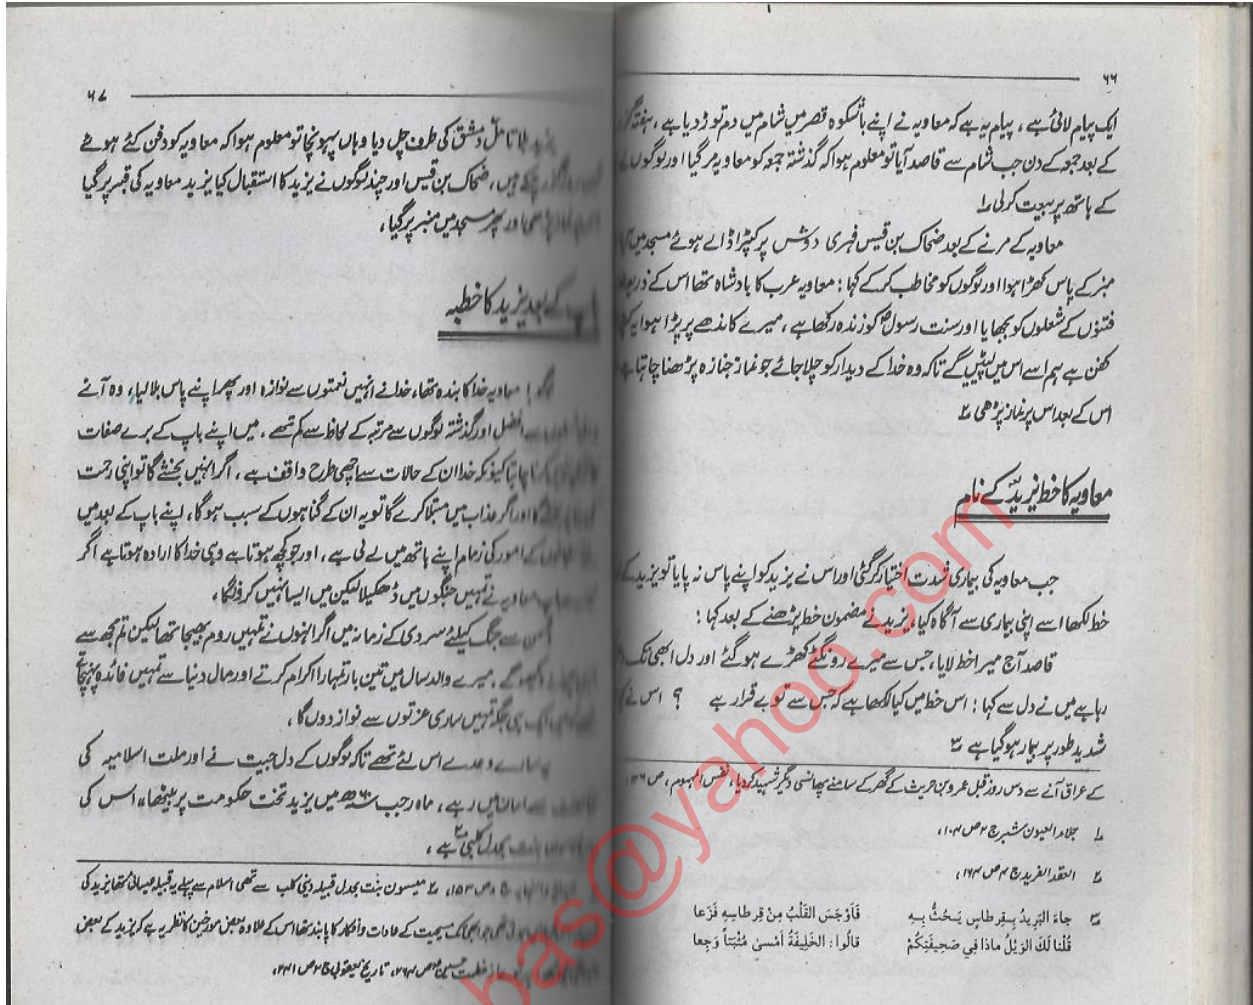 ۶۶
ایک پیام لائی ہے، پیام یہ ہے کہ معاویہ نے اپنے باشکوہ قصر میں شام میں دم توڑ دیا ہے، ہفتہ
کے بعد جمعہ کے دن جب شام سے قاصد آیا تو معلوم ہوا کہ گذشتہ جمعہ کو معاویہ مر گیا اور لوگوں نے
کے ہاتھ پر بیعت کرلی ۱
معاویہ کے مرنے کے بعد ضحاک بن قیس فہری دوش پر کپڑا ڈالے ہوئے مسجد میں
منبر کے پاس کھڑا ہوا اور لوگوں کو مخاطب کرکے کہا: معاویہ عرب کا بادشاہ تھا اس کے ذریعہ
فتنوں کے شعلوں کو بجھایا اور سنت رسولؐ کو زندہ رکھا ہے، میرے کاندھے پر پڑا ہوا یہ
کفن ہے ہم اسے اس میں لپیٹیں گے تاکہ وہ خدا کے دیدار کو چلا جائے جو نماز جنازہ پڑھنا چاہتا ہے
اس کے بعد اس پر نماز پڑھی ۲
معاویہ کا خط یزید کے نام
جب معاویہ کی بیماری شدت اختیار کرگئی اور اس نے یزید کو اپنے پاس نہ پایا تو یزید کے
خط لکھا اسے اپنی بیماری سے آگاہ کیا، یزید نے مضمون خط پڑھنے کے بعد کہا:
قاصد آج میرا خط لایا، جس سے میرے رونگٹے کھڑے ہوگئے اور دل ابھی تک
رہا ہے میں نے دل سے کہا: اس خط میں کیا لکھا ہے کہ جس سے تو بے قرار ہے ؟ اس نے
شدید طور پر بیمار ہوگیا ہے ۳
کے عراق آنے سے دس روز قبل عمرو بن حریث کے گھر کے سامنے پھانسی دیگر شہید کردیا، نفس المہموم، ص ۱۳۶،
۱ جلاء العیون شبر ج ۲ ص ۱۰۴،
۲ العقد الفرید ج ۴ ص ۱۶۴،
۳ جاءَ البَرِيدُ بِقِرطاسٍ يَحُثُّ بِهِ فَأَوْجَسَ القَلْبُ مِنْ قِرطاسِهِ فَزَعا
قُلْنا لَكَ الوَيْلُ ماذا فِي صَحِيفَتِكُمْ قالُوا: الخَلِيفَةُ أَمْسىٰ مُثْبَتاً وَجِعا
۶۷
بلا تامل دمشق کی طرف چل دیا وہاں پہونچا تو معلوم ہوا کہ معاویہ کو دفن کئے ہوئے
چکے ہیں، ضحاک بن قیس اور چند لوگوں نے یزید کا استقبال کیا یزید معاویہ کی قبر پر گیا
اور پھر مسجد میں منبر پر گیا،
کے بعد یزید کا خطبہ
لوگو! معاویہ خدا کا بندہ تھا، خدا نے انہیں نعمتوں سے نوازہ اور پھر اپنے پاس بلالیا، وہ آنے
سے افضل اور گذشتہ لوگوں سے مرتبہ کے لحاظ سے کم تھے، میں اپنے باپ کے برے صفات
چاہتا کیونکہ خدا ان کے حالات سے اچھی طرح واقف ہے، اگر انہیں بخشے گا تو اپنی رحمت
اور اگر عذاب میں مبتلا کرے گا تو یہ ان کے گناہوں کے سبب ہوگا، اپنے باپ کے بعد میں
کے امور کی زمام اپنے ہاتھ میں لے لی ہے، اور جو کچھ ہوتا ہے وہی خدا کا ارادہ ہوتا ہے اگر
معاویہ نے تمہیں جنگوں میں ڈھکیلا لیکن میں ایسا نہیں کروں گا،
سے جنگ کیلئے سردی کے زمانہ میں اگر انہوں نے تمہیں روم بھیجا تھا لیکن تم مجھ سے
دیکھو گے، میرے والد سال میں تین بار تمہارا اکرام کرتے اور مال دنیا سے تمہیں فائدہ پہنچاتے
ایک ہی جگہ تمہیں ساری عزتوں سے نواز دوں گا،
یہ سارے وعدے اس لئے تھے تاکہ لوگوں کے دل جیت نے اور ملت اسلامیہ کی
سے امان میں رہے، ماہ رجب ۶۰ھ میں یزید تخت حکومت پر بیٹھا، اس کی
بنت بجدل کلبی ۲ ہے،
ج ۸ ص ۱۵۳، ۲ میسون بنت بجدل قبیلہ بنی کلب سے تھی اسلام سے پہلے یہ قبیلہ عیسائی تھا یزید کی
تھی جو ابھی تک مسیحیت کے عادات و افکار کا پابند تھا اس کے علاوہ بعض مورخین کا نظریہ ہے کہ یزید کے بعض
حسین ص ۲۶۴، تاریخ یعقوبی ج ۲ ص ۲۴۱،
bas@yahoo.com